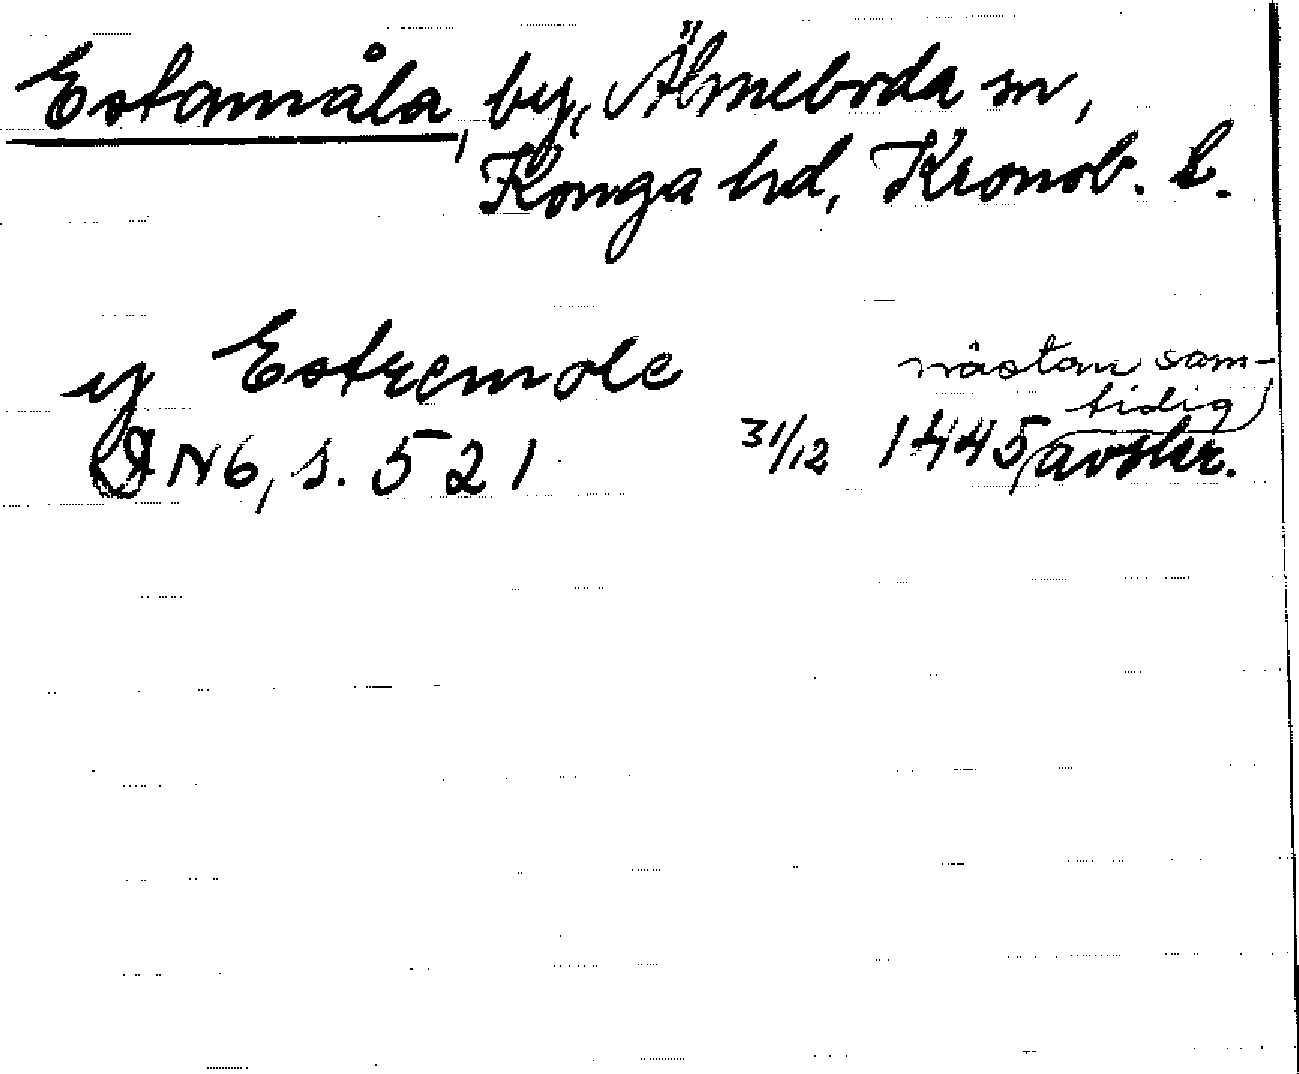 Estamåla, by, Älmeboda sn,
Konga hd, Kronob. l.
y Estremole
DN 6, s. 521 31/12 1445 (nästan sam-
tidig) avskr.